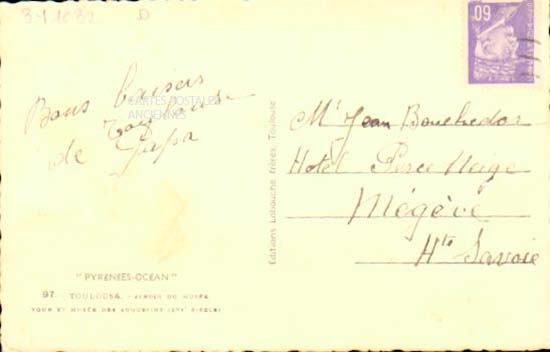 391032 D
60
Bons baisers
Toulouse
de Papa
CARTES POSTALES
ANCIENNES
Editions Labouche frères, Toulouse
Mr Jean Bouchedor
Hotel Perce Neige
Mégève
Hte Savoie
"PYRÉNÉES-OCÉAN"
97. - TOULOUSE. - JARDIN DU MUSÉE
TOUR ET MUSÉE DES AUGUSTINS (XIVe SIÈCLE)